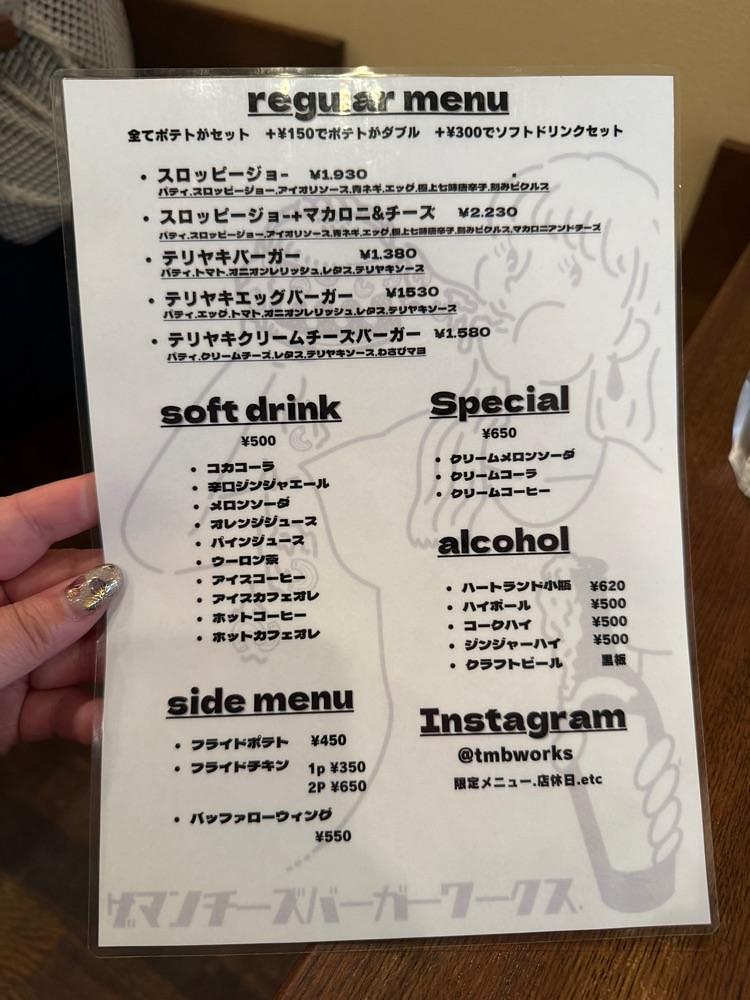 regular menu
全てポテトがセット +¥150でポテトがダブル +¥300でソフトドリンクセット
• スロッピージョー ¥1.930
パティ.スロッピージョー.アイオリソース.青ネギ.エッグ.極上七味唐辛子.刻みピクルス
• スロッピージョー+マカロニ&チーズ ¥2.230
パティ.スロッピージョー.アイオリソース.青ネギ.エッグ.極上七味唐辛子.刻みピクルス.マカロニアンドチーズ
• テリヤキバーガー ¥1.380
パティ.トマト.オニオンレリッシュ.レタス.テリヤキソース
• テリヤキエッグバーガー ¥1530
パティ.エッグ.トマト.オニオンレリッシュ.レタス.テリヤキソース
• テリヤキクリームチーズバーガー ¥1.580
パティ.クリームチーズ.レタス.テリヤキソース.わさびマヨ
soft drink
¥500
• コカコーラ
• 辛口ジンジャエール
• メロンソーダ
• オレンジジュース
• パインジュース
• ウーロン茶
• アイスコーヒー
• アイスカフェオレ
• ホットコーヒー
• ホットカフェオレ
Special
¥650
• クリームメロンソーダ
• クリームコーラ
• クリームコーヒー
alcohol
• ハートランド小瓶 ¥620
• ハイボール ¥500
• コークハイ ¥500
• ジンジャーハイ ¥500
• クラフトビール 黒板
side menu
• フライドポテト ¥450
• フライドチキン 1p ¥350
2P ¥650
• バッファローウィング
¥550
Instagram
@tmbworks
限定メニュー.店休日.etc
ザマンチーズバーガーワークス.